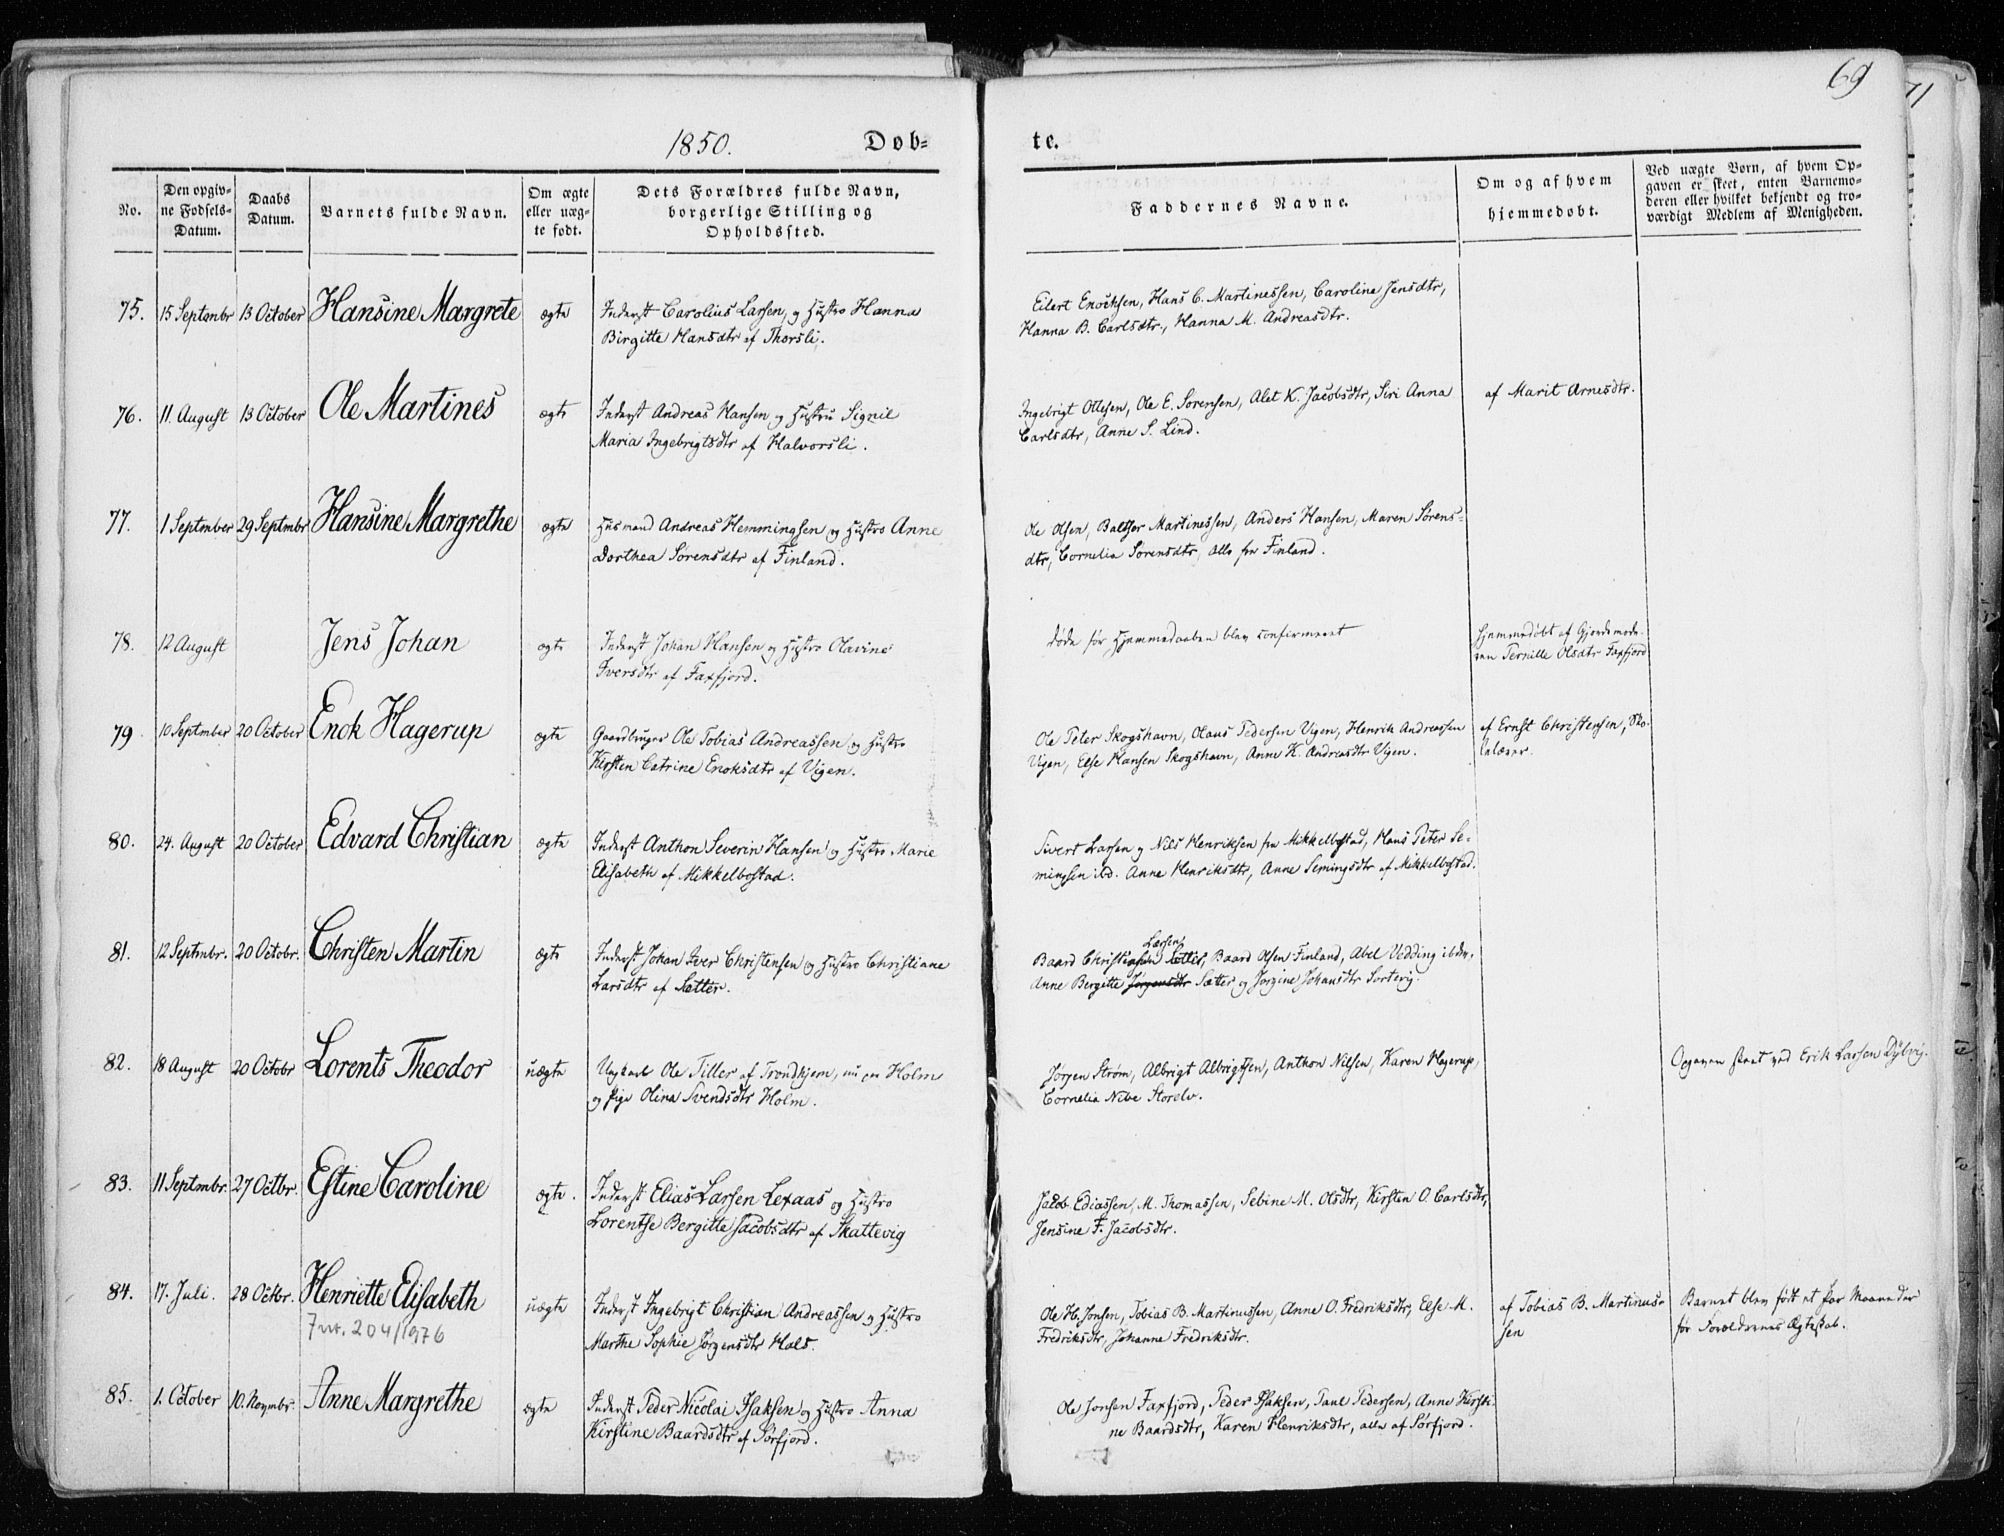 69
71
1850. Døb=
te.
No.
Den opgiv=
ne Fødsels=
Datum.
Daabs
Datum.
Barnets fulde Navn.
Om ægte
eller uæg=
te født.
Dets Forældres fulde Navn,
borgerlige Stilling og
Opholdssted.
Faddernes Navne.
Om og af hvem
hjemmedøbt.
Ved uægte Børn, af hvem Op=
gaven er skeet, enten Barnemo=
deren eller hvilket bekjendt og tro=
værdigt Medlem af Menigheden.
75. 15 Septembr 13 October Hansine Margrete ægte
Inderst Carolius Larsen, og Hustro Hanna
Birgitte Hansdtr af Thorsli.
Eilert Enocksen, Hans C. Martinessen, Caroline Jensdtr,
Hanna B. Carlsdtr., Hanna M. Andreasdtr.
76. 11. August 13 October Ole Martines ægte
Inderst Andreas Hansen og Hustru Signil
Maria Ingebrigtsdtr af Halvorsli.
Ingebrigt Ottesen, Ole E. Sørensen, Alet K. Jacobsdtr, Siri Anna
Carlsdtr, Anne S. Lind.
af Marit Arnesdtr.
77. 1 Septmber 29 Septmbr Hansine Margrethe ægte
Husmand Andreas Hemmingsen og Hustro Anne
Dorthea Sørensdtr af Finland.
Ole Olsen, Baltser Martinessen, Anders Hansen, Maren Sørens=
dtr, Cornelia Sørensdtr, alle fra Finland.
78. 12 August Jens Johan ægte
Inderst Johan Hansen og Hustro Olavine
Iversdtr af Faxfjord.
døde før Hjemmedaaben blev confirmeret
Hjemmedøbt af Gjordemode-
ren Pernille Olsdtr Faxfjord
79 10 Septmber 20 October Enok Hagerup ægte
Gaardbruger Ole Tobias Andreassen og Hustro
Kirsten Catrine Enoksdtr af Vigen.
Ole Peter Skogshavn, Olaus Pedersen Vigen, Henrik Andreassen
Vigen, Else Hansen Skogshavn, Anne K. Andreasdtr Vigen.
af Ernst Christensen, Sko-
lelærer.
80. 24. August 20 October Edvard Christian ægte
Inderst Anthon Severin Hansen og Hustro Marie
Elisabeth af Mikkelbostad.
Sivert Larsen og Nils Henriksen fra Mikkelbostad, Hans Peter Se-
mingsen ibd. Anne Henriksdtr, Anne Semingsdtr af Mikkelbostad.
81. 12 Septmbr. 20 Octobr. Christen Martin ægte
Inderst Johan Iver Christensen og Hustro Christiane
Larsdtr af Sætter.
Larsen
Baard Christiansen Sætter, Baard Olsen Finland, Abel Vedding ibdm,
Anne Bergitte Jørgensdtr Sætter og Jørgine Johansdtr Sortevig.
82. 18 August 20 Octobr Lorents Theodor uægte
Ungkarl Ole Tiller af Trondhjem, nu paa Holm
og Pige Olina Svendsdtr Holm.
Jørgen Strøm, Albrigt Albrigtsen, Anthon Nilsen, Karen Hagerup,
Cornelia Nibe Storelv.
Opgaven skeet ved Erik Larsen Dybvig.
83. 11 Septmbr. 27 Octbr. Estine Caroline ægte.
Inderst Elias Larsen Lexaas og Hustro
Lorentse Bergitte Jacobsdtr af Skattevig
Jacob Ediassen, M. Thomassen, Sebine M. Olsdtr, Kirsten O. Carlsdtr,
Jensine F. Jacobsdtr.
84. 17. Juli. 28 Octbr. Henriette Elisabeth uægte
Jnr. 204/1976
Inderst Ingebrigt Christian Andreassen og Hustro
Marthe Sophie Jørgensdtr Hals.
Ole H. Jonsen, Tobias B. Martinussen, Anne O. Fredriksdtr, Else M.
Fredriksdtr, Johanne Fredriksdtr.
af Tobias B. Martinus=
sen
Barnet blev født et par Maaneder
før Forældrenes Ægteskab.
85. 1. October 10. Novmbr. Anne Margrethe ægte
Inderst Peder Nicolai Isaksen og Hustro Anna
Kirstine Baardsdtr af Sørfjord.
Ole Jonsen Faxfjord, Peder Isaksen, Paul Pedersen, Anne Kirsti-
ne Baardsdtr, Karen Henriksdtr, alle af Sørfjord.